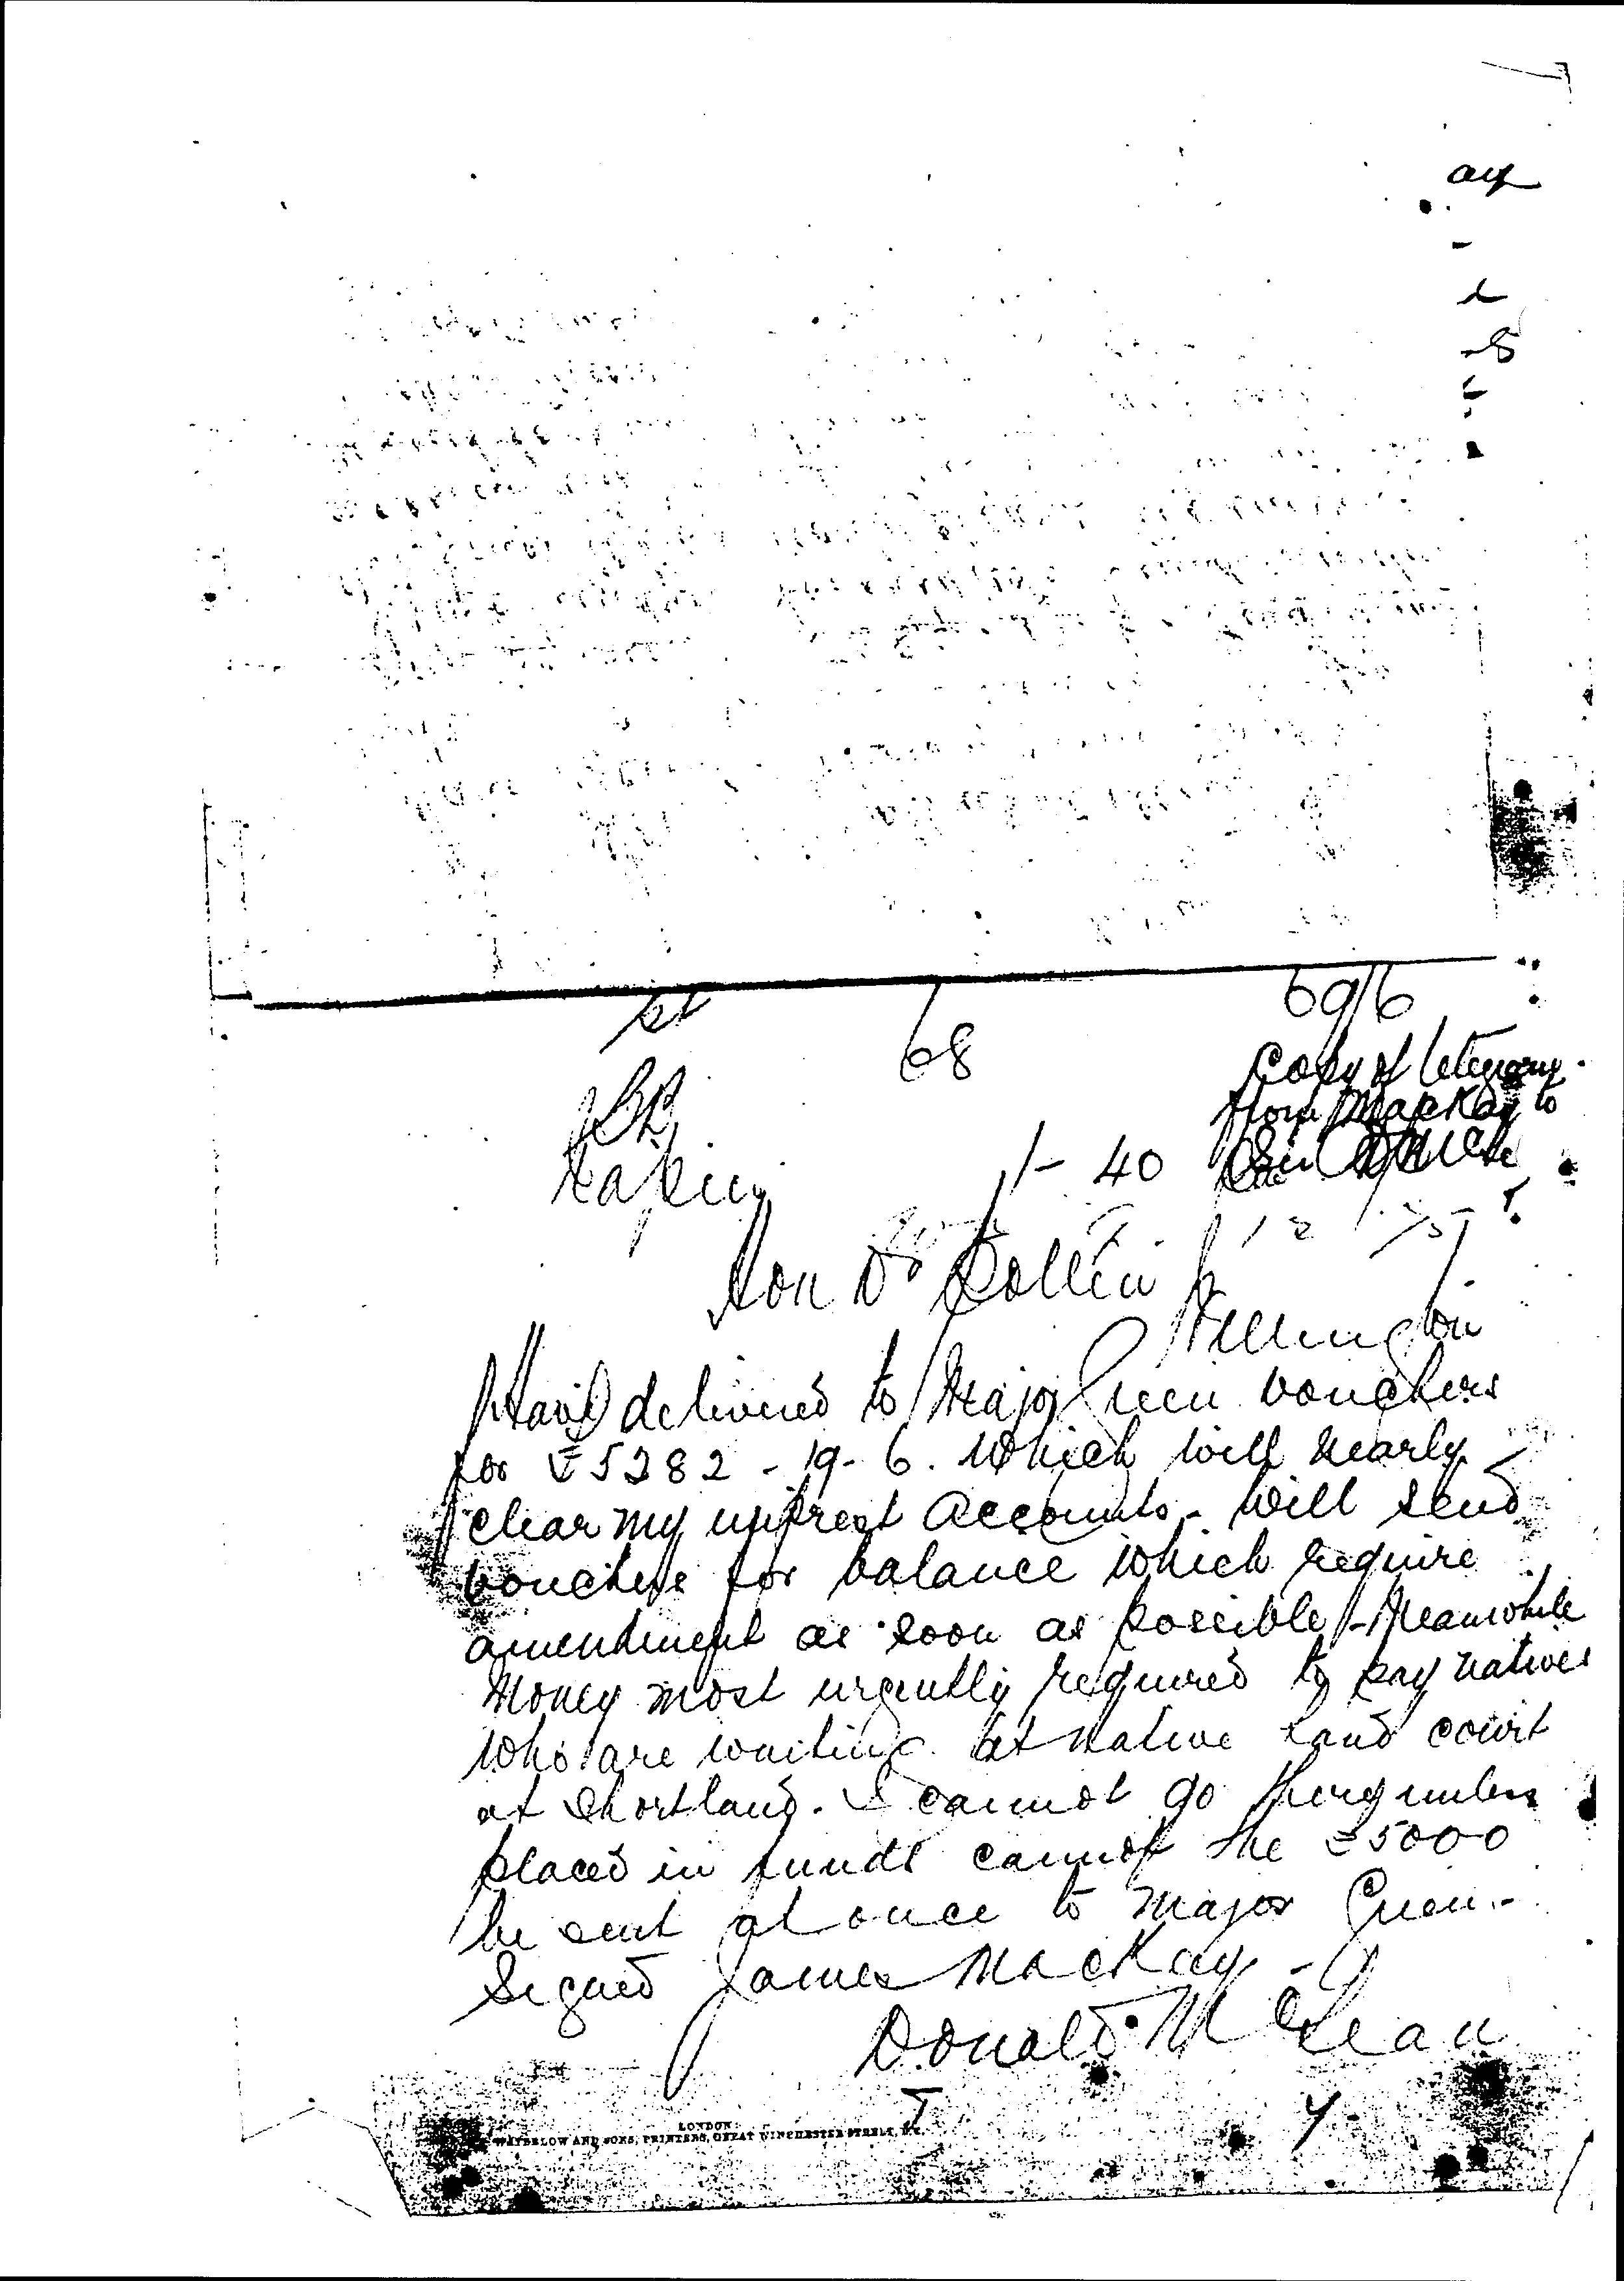 68
69/6
Copy of telegram
from MacKay to
1-40
Napier
Hon Dr Pollen
Wellington
Have delivered to Major Green vouchers
for £5282-19-6. Which will nearly
clear my imprest Accounts - will send
vouchers for balance which require
amendment as soon as possible - Meanwhile
Money most urgently required to pay natives
who are waiting at native Land court
at Shortland. I cannot go there unless
placed in funds cannot the £5000
be sent at once to Major Green.-
Signed James MacKay -
Donald McLean
LONDON:
WATERLOW AND SONS, PRINTERS, GREAT WINCHESTER STREET, E.C.